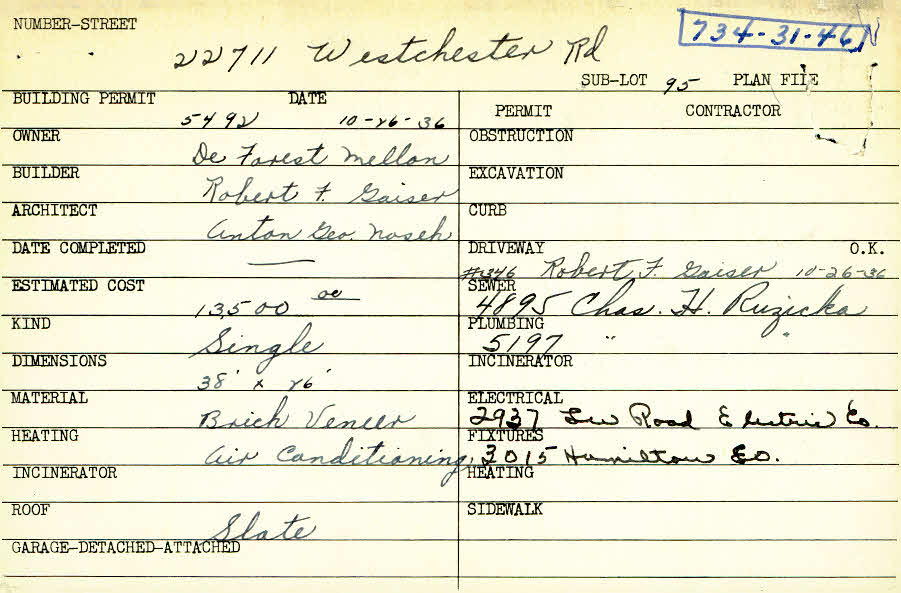 NUMBER-STREET
734-31-46
22711 Westchester Rd
SUB-LOT 95 PLAN FILE
BUILDING PERMIT DATE
5492 10-26-36
PERMIT CONTRACTOR
OWNER
De Forest Mellon
OBSTRUCTION
BUILDER
Robert F. Gaiser
EXCAVATION
ARCHITECT
Anton Geo. Noseh
CURB
DATE COMPLETED
—
DRIVEWAY O.K.
#346 Robert F. Gaiser 10-26-36
ESTIMATED COST
13500 00
SEWER
4895 Chas. H. Ruzicka
KIND
Single
PLUMBING
5197 " "
DIMENSIONS
38' x 26'
INCINERATOR
MATERIAL
Brick Veneer
ELECTRICAL
2937 Lee Road Electric Co.
HEATING
Air Conditioning
FIXTURES
3015 Hamilton Co.
INCINERATOR
HEATING
ROOF
Slate
SIDEWALK
GARAGE-DETACHED-ATTACHED